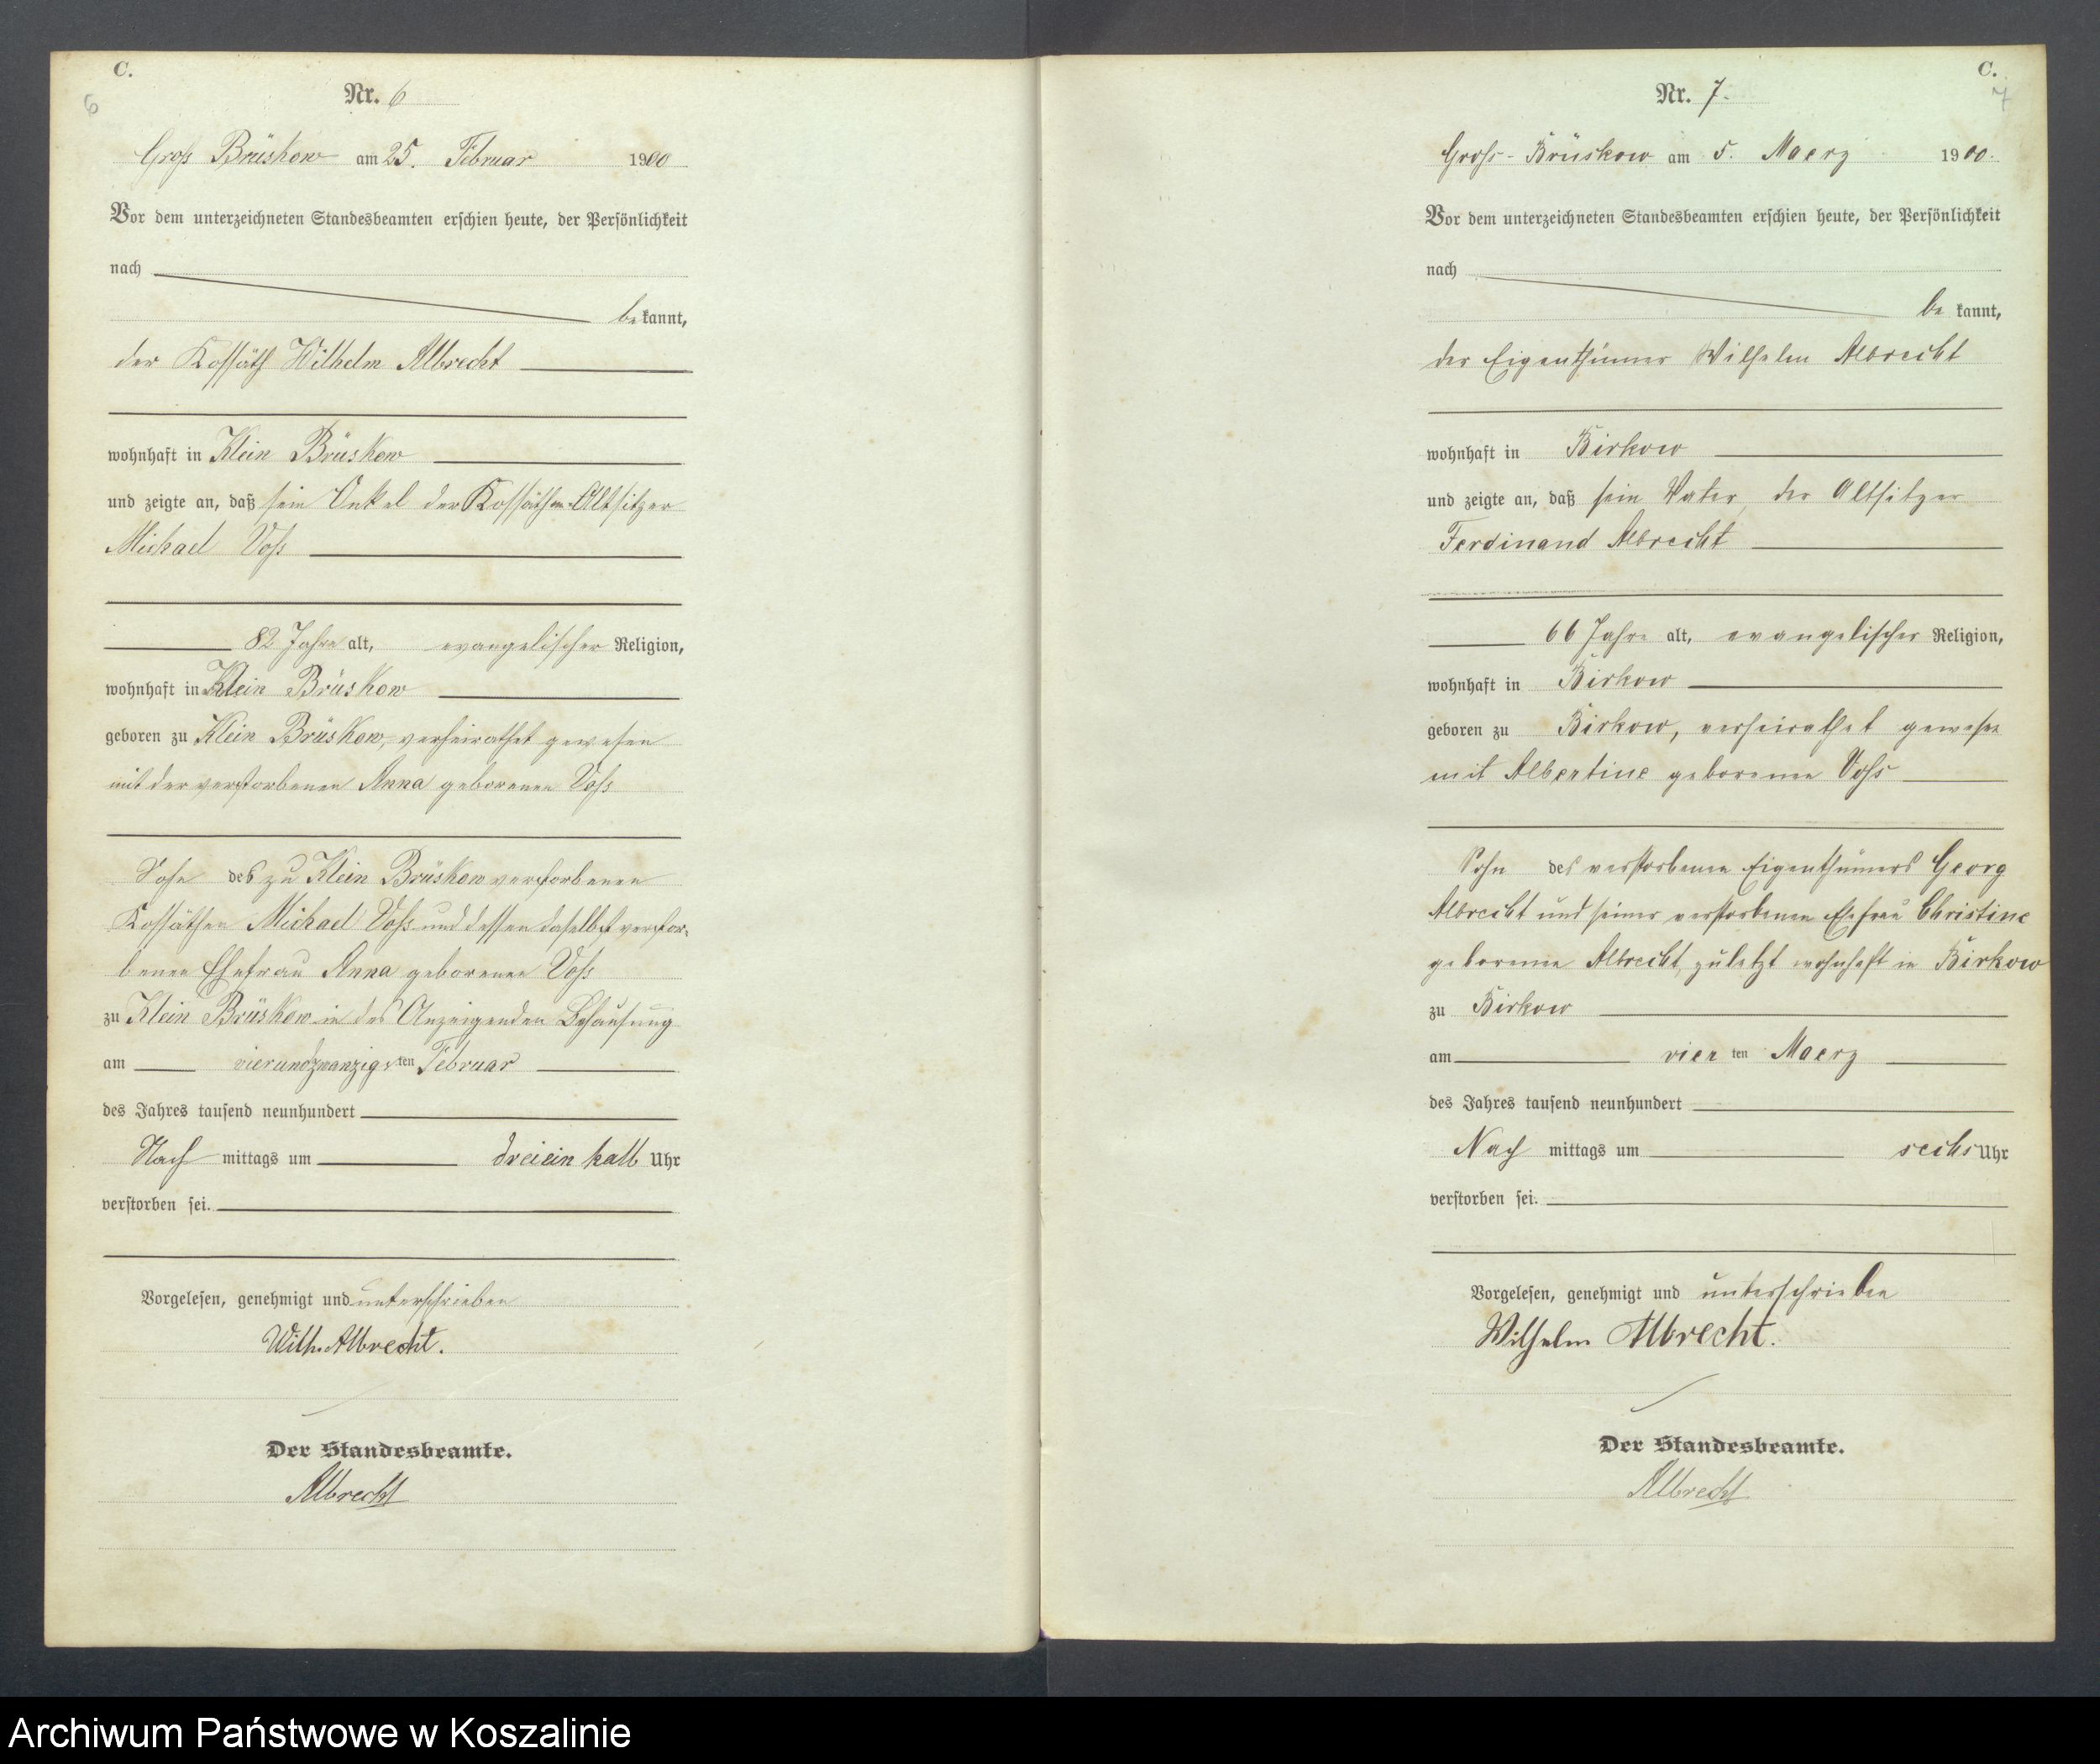 C.
6
Nr. 6
Groß Brüskow am 25. Februar 1900
Vor dem unterzeichneten Standesbeamten erschien heute, der Persönlichkeit
nach
be kannt,
der Kossäth Wilhelm Albrecht
wohnhaft in Klein Brüskow
und zeigte an, daß sein Onkel der Kossäthen-Altsitzer
Michael Voß
82 Jahre alt, evangelischer Religion,
wohnhaft in Klein Brüskow
geboren zu Klein Brüskow, verheirathet gewesen
mit der verstorbenen Anna geborenen Voß
Sohn des zu Klein Brüskow verstorbenen
Kossäthen Michael Voß und dessen daselbst verstor-
benen Ehefrau Anna geborenen Voß
zu Klein Brüskow in des Anzeigenden Behausung
am vierundzwanzigsten Februar
des Jahres tausend neunhundert
Nach mittags um dreieinhalb Uhr
verstorben sei.
Vorgelesen, genehmigt und unterschrieben
Wilh. Albrecht.
Der Standesbeamte.
Albrecht
C.
7
Nr. 7.
Groß-Brüskow am 5. Maerz 1900.
Vor dem unterzeichneten Standesbeamten erschien heute, der Persönlichkeit
nach
be kannt,
der Eigenthümer Wilhelm Albrecht
wohnhaft in Birkow
und zeigte an, daß sein Vater, der Altsitzer
Ferdinand Albrecht
66 Jahre alt, evangelischer Religion,
wohnhaft in Birkow
geboren zu Birkow, verheirathet gewesen
mit Albertine geborenen Voß
Sohn des verstorbenen Eigenthümers Georg
Albrecht und seiner verstorbenen Ehefrau Christine
geborenen Albrecht, zuletzt wohnhaft in Birkow
zu Birkow
am vier ten Maerz
des Jahres tausend neunhundert
Nach mittags um sechs Uhr
verstorben sei.
Vorgelesen, genehmigt und unterschrieben
Wilhelm Albrecht.
Der Standesbeamte.
Albrecht
Archiwum Państwowe w Koszalinie